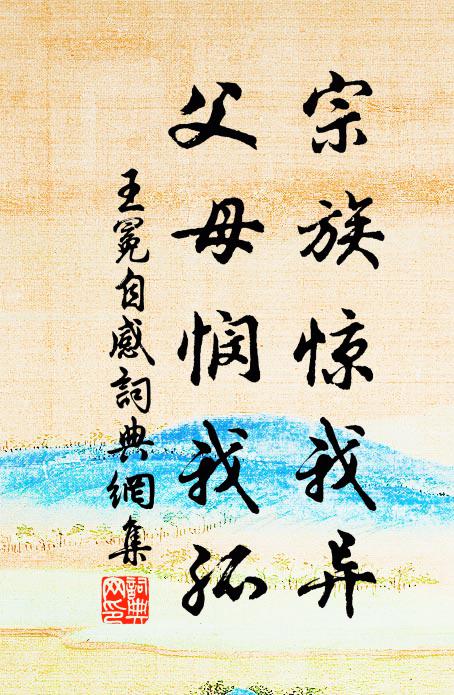 宗族惊我异
父母悯我孤
王冕自感詞典網集
詞典